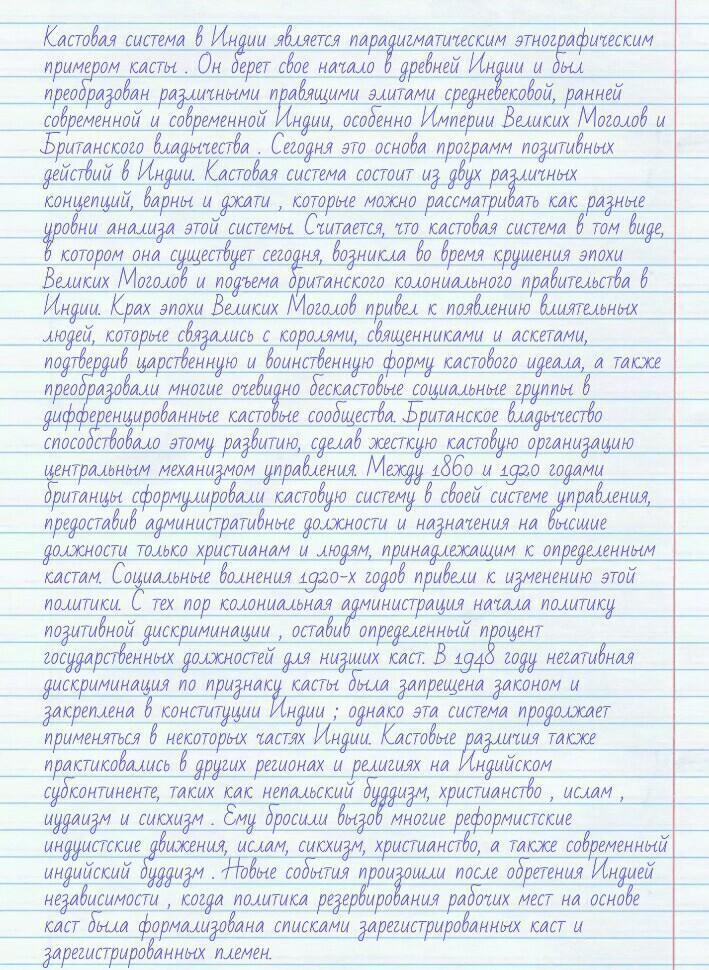 Кастовая система в Индии является парадигматическим этнографическим
примером касты . Он берет свое начало в древней Индии и был
преобразован различными правящими элитами средневековой, ранней
современной и современной Индии, особенно Империи Великих Моголов и
Британского владычества . Сегодня это основа программ позитивных
действий в Индии. Кастовая система состоит из двух различных
концепций, варны и джати , которые можно рассматривать как разные
уровни анализа этой системы. Считается, что кастовая система в том виде,
в котором она существует сегодня, возникла во время крушения эпохи
Великих Моголов и подъема британского колониального правительства в
Индии. Крах эпохи Великих Моголов привел к появлению влиятельных
людей, которые связались с королями, священниками и аскетами,
подтвердив царственную и воинственную форму кастового идеала, а также
преобразовали многие очевидно бескастовые социальные группы в
дифференцированные кастовые сообщества. Британское владычество
способствовало этому развитию, сделав жесткую кастовую организацию
центральным механизмом управления. Между 1860 и 1920 годами
британцы сформулировали кастовую систему в своей системе управления,
предоставив административные должности и назначения на высшие
должности только христианам и людям, принадлежащим к определенным
кастам. Социальные волнения 1920-х годов привели к изменению этой
политики. С тех пор колониальная администрация начала политику
позитивной дискриминации , оставив определенный процент
государственных должностей для низших каст. В 1948 году негативная
дискриминация по признаку касты была запрещена законом и
закреплена в конституции Индии ; однако эта система продолжает
применяться в некоторых частях Индии. Кастовые различия также
практиковались в других регионах и религиях на Индийском
субконтиненте, таких как непальский буддизм, христианство , ислам ,
иудаизм и сикхизм . Ему бросили вызов многие реформистские
индуистские движения, ислам, сикхизм, христианство, а также современный
индийский буддизм . Новые события произошли после обретения Индией
независимости , когда политика резервирования рабочих мест на основе
каст была формализована списками зарегистрированных каст и
зарегистрированных племен.